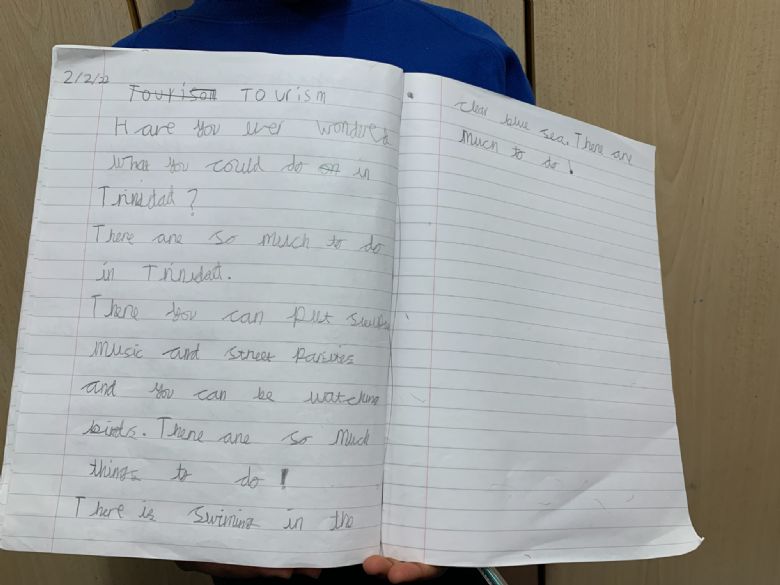 2/2/22
Tourison Tourism
Hare you ever wondered
what you could do on in
Trinidad?
There are so much to do
in Trinidad.
There you can put
music and street parites
and you can be watching
birds. There are so much
things to do!
There is swiming in the
clear blue sea. There are
much to do!